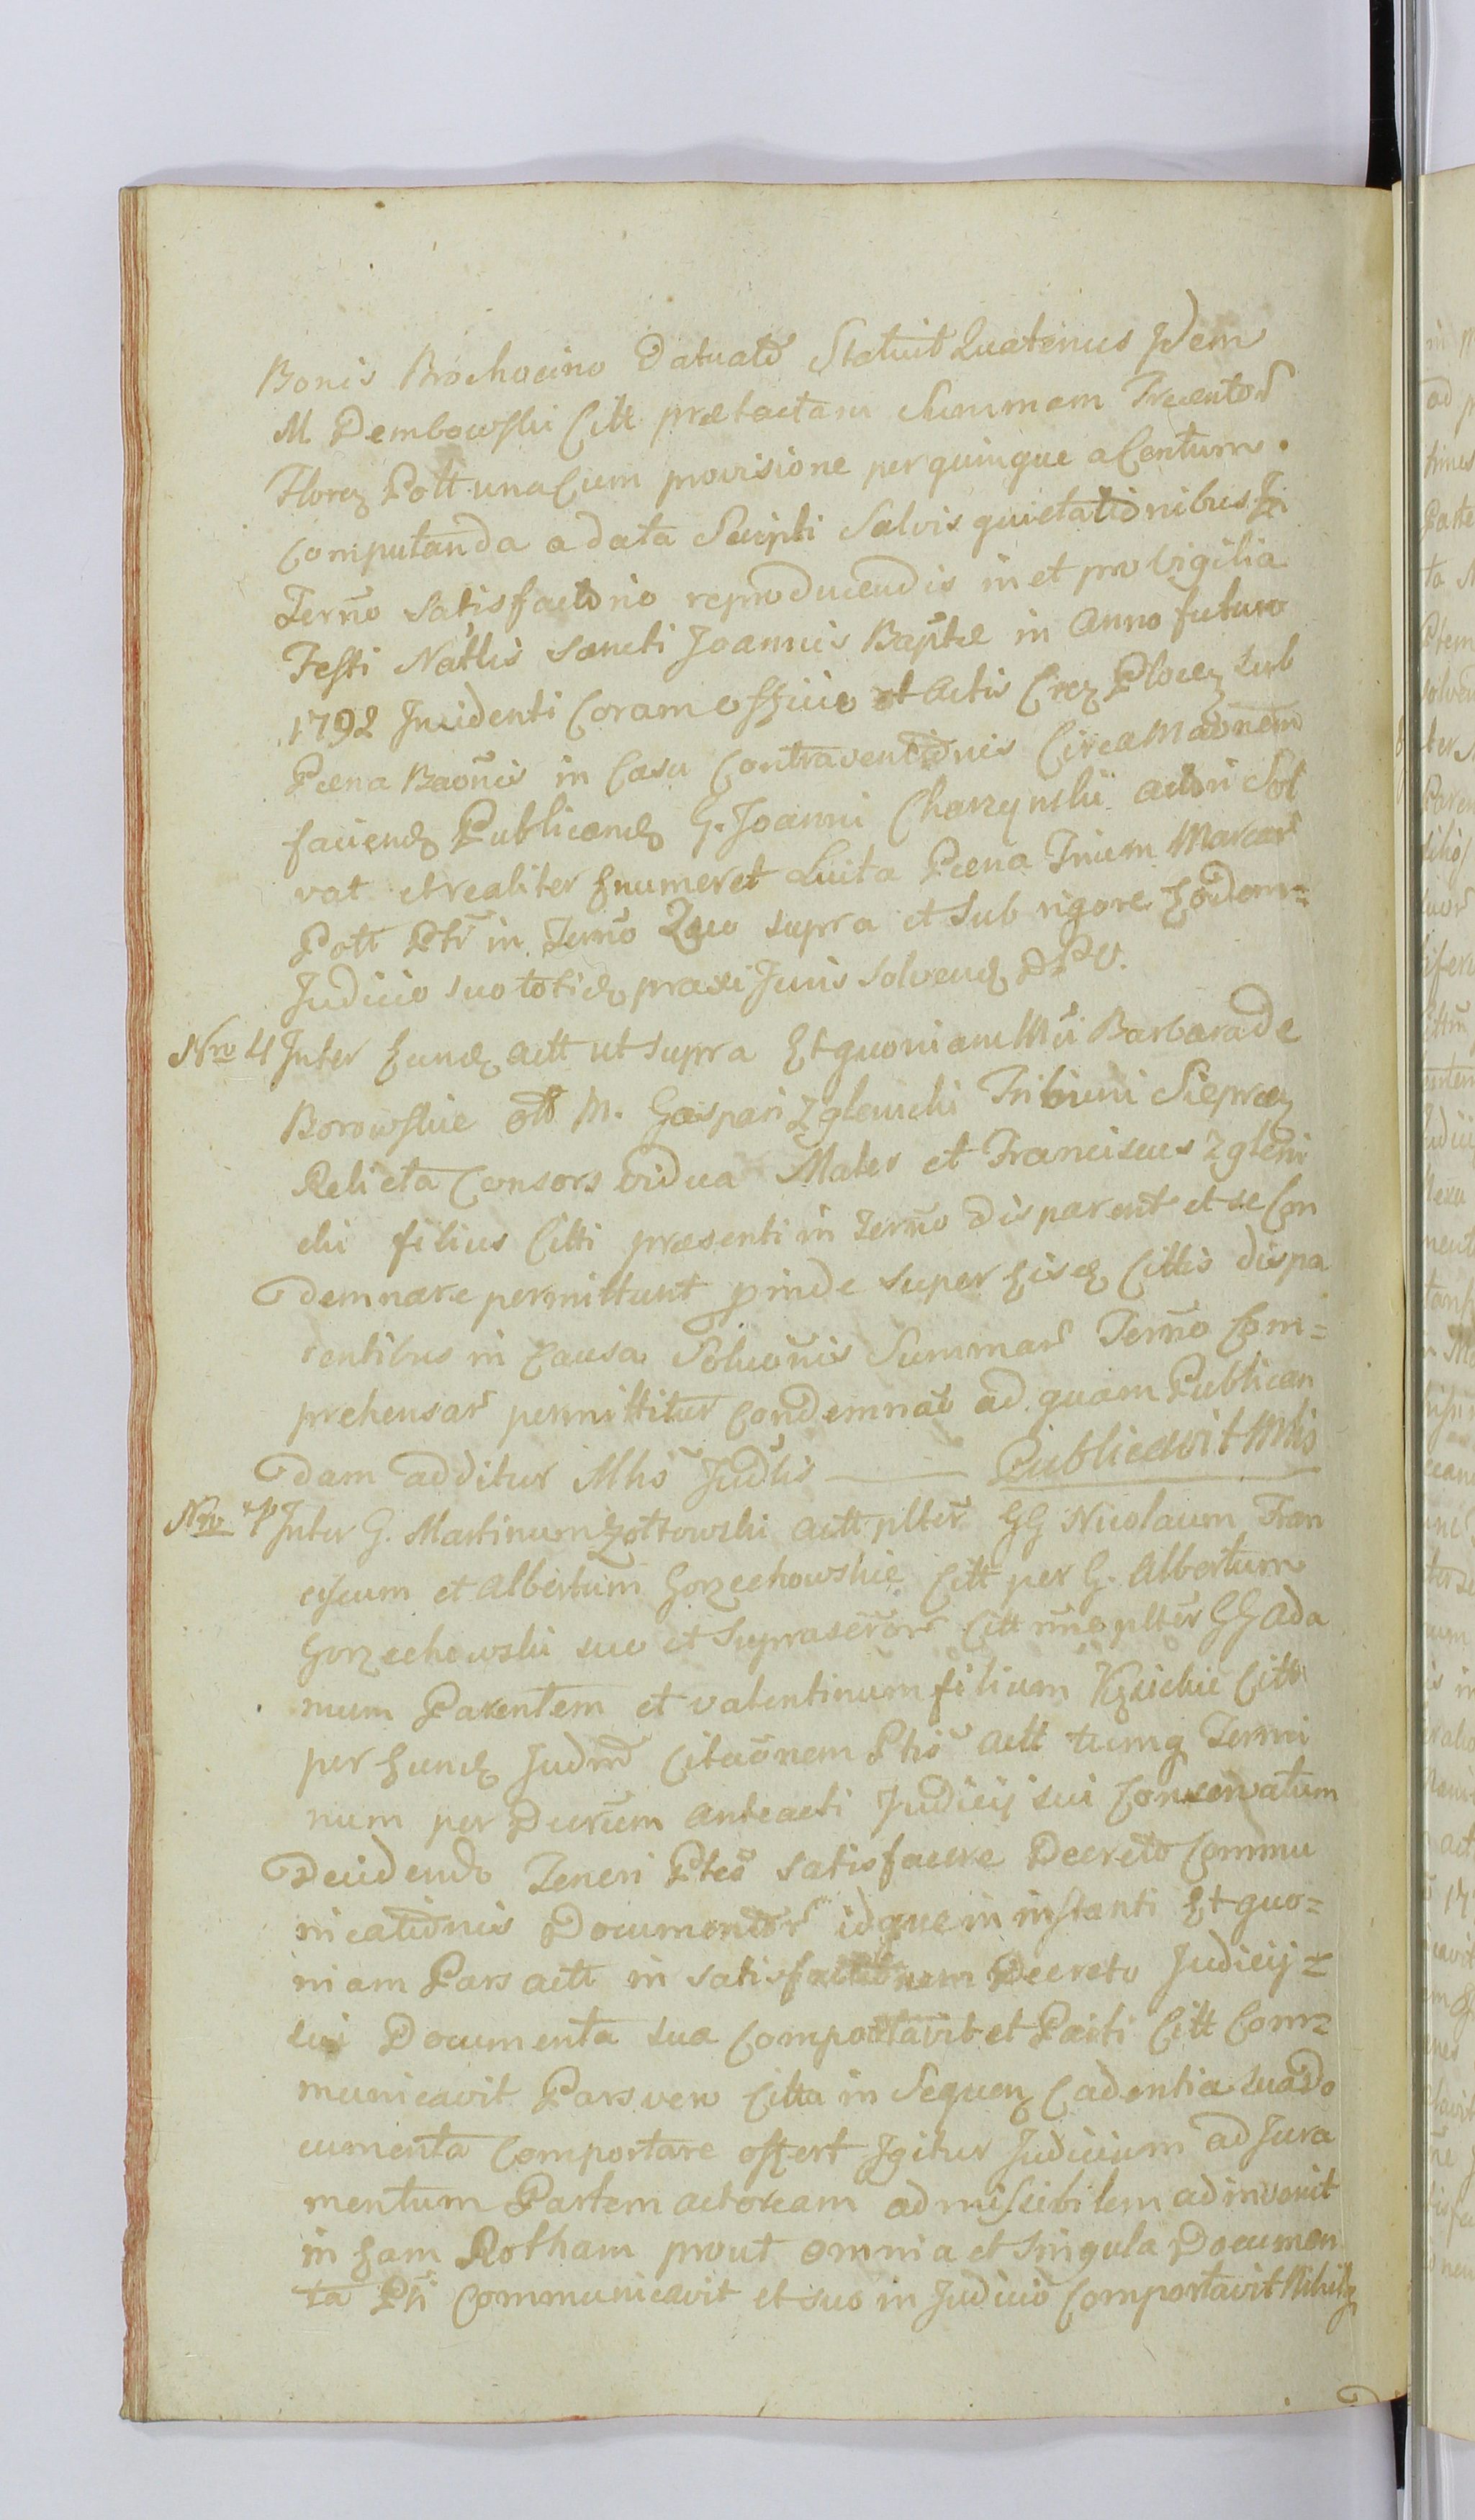 Bonis Brochocino Datuatr Statuit Quatenus Idem
M Dembowski Citt prætactam Summam Trecentor
Floreņ Poll una Cum provisione per quinque a Centum.
Computanda a data Scripti Salvis quietationibus In
Termo Satisfactorio reproducendis in et pro Vigilia
Festi Natlis Sancti Joannis Baptæ in Anno futuro
1792 Incidenti Coram officio et Actis Cręz Plocen sub
Pœna Baonis in Casu Contraventionis Circa Maonem
faciend Publicand G. Joanni Charzynskii actori Sol
vat et realiter Enumeret Luita Pœna Trium Marcar
Poll Pti in Termo Quo supra et Sub rigore Eodem=
Judicio suo totid praxi Juris Solvend DPV.
Nro 4 Inter Eund Actt ut supra Et quoniam Mci Barbara de
Borowskie olt M. Gaspari Zglenicki Tribuni Sieprcen
Relicta Consors vidua Mater et Franciscus Zgleni
cki filius Citti præsenti in Termo disparent et se Con
demnare permittunt proinde super Eisd Cittis dispa
rentibus in Causa Soluonis Summar Termo Com=
prehensar permittitur Condemnao ad quam Publican
dam additur Mlis Judlis — Publicavit Mlis
Nro Inter G. Martinum Zottowski Actt plter GG Nicolaum Fran
ciscum et Albertum Gorzechowskie Citt per G. Albertum
Gorzechowski suo et Suprascror Citt nne plter GG Ada
mum Parentem et Valentinum filium Kęsickie Citt
per Eund Judm Citaonem Ptis Actt tumq Termi
num per Decrum anteacti Judicij sui Conservatum
Decidendo Teneri Ptes satisfacere Decreto Commu
nicationis Documentor idque in instanti Et quo=
niam Pars Actt in satisfactionem Decreto Judicij=
sui Documenta sua Comportavit et Parti Citt Com=
municavit Pars vero Citta in Sequen Cadentia sua Do
cumenta Comportare offert Igitur Judicium ad Jura
mentum Partem actoream admiscibilem adinvenit
in Eam Rotham prout omnia et Singula Documen
ta Pti Communicavit et suo in Judicio Comportavit Nihilq